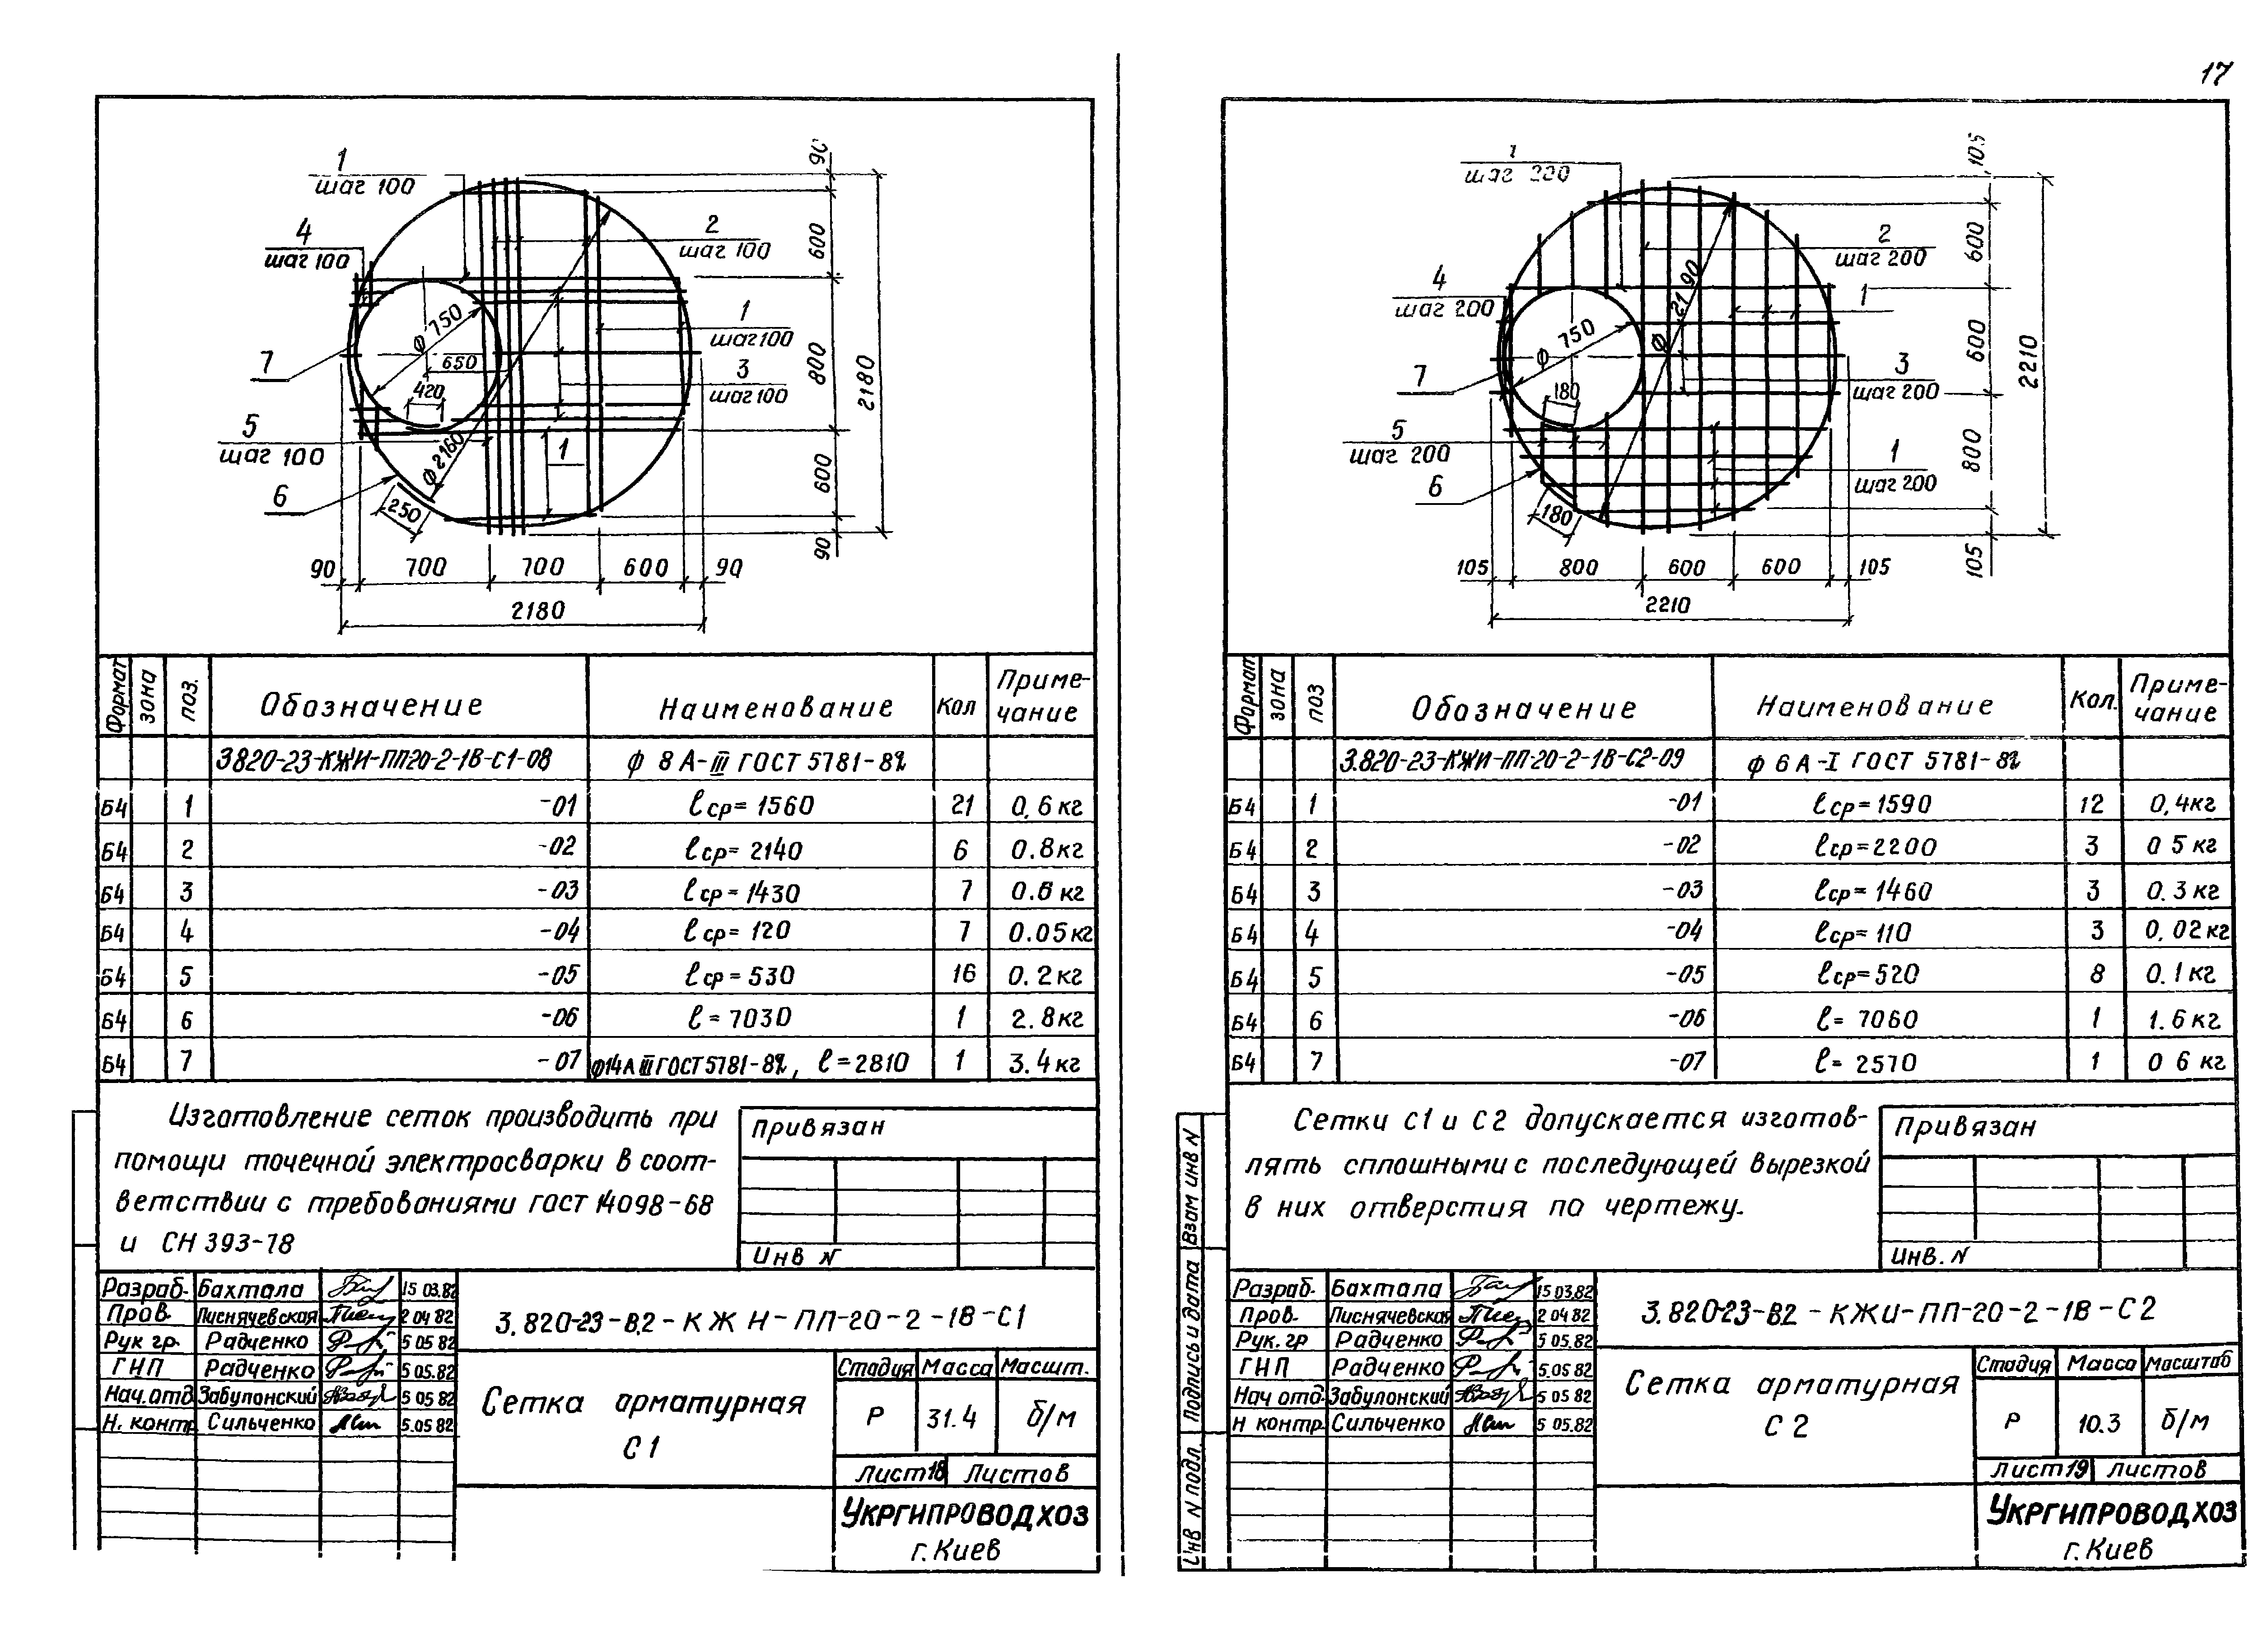 17
1
шаг 100
4
шаг 100
2
шаг 100
1
шаг 100
3
шаг 100
7
5
шаг 100
6
1
ф 750
650
420
ф 2160
250
90
600
800
600
90
2180
90 700 700 600 90
2180
Формат зона поз. Обозначение Наименование Кол Приме-
чание
3820-23-КЖИ-ПП20-2-1В-С1-08 ф 8 А-III ГОСТ 5781-82
Б4 1 -01 ℓср=1560 21 0,6 кг
Б4 2 -02 ℓср=2140 6 0.8 кг
Б4 3 -03 ℓср=1430 7 0.6 кг
Б4 4 -04 ℓср=120 7 0.05 кг
Б4 5 -05 ℓср=530 16 0.2 кг
Б4 6 -06 ℓ=7030 1 2.8 кг
Б4 7 -07 ф14А III ГОСТ 5781-82, ℓ=2810 1 3.4 кг
Изготовление сеток производить при
помощи точечной электросварки в соот-
ветствии с требованиями ГОСТ 14098-68
и СН 393-78
Привязан
Инв N
Разраб. Бахтала 15 03.82
Пров. Лисничевская 2 04 82
Рук гр. Радченко 5 05 82
ГИП Радченко 5 05.82
Нач. отд. Забулонский 5 05 82
Н. контр. Сильченко 5.05 82
3.820-23-В.2-КЖИ-ПП-20-2-1В-С1
Сетка арматурная
С 1
Стадия Масса Масшт.
Р 31.4 б/м
Лист 18 Листов
Укргипроводхоз
г. Киев
1
шаг 200
4
шаг 200
2
шаг 200
1
3
шаг 200
7
5
шаг 200
6
1
шаг 200
ф 750
ф 2190
180
180
105
600
600
800
105
2210
105 800 600 600 105
2210
Формат зона поз Обозначение Наименование Кол. Приме-
чание
3.820-23-КЖИ-ПП-20-2-1В-С2-09 ф 6 А-I ГОСТ 5781-82
Б4 1 -01 ℓср=1590 12 0,4кг
Б4 2 -02 ℓср=2200 3 0 5 кг
Б4 3 -03 ℓср=1460 3 0.3 кг
Б4 4 -04 ℓср=110 3 0,02 кг
Б4 5 -05 ℓср=520 8 0.1 кг
Б4 6 -06 ℓ= 7060 1 1.6 кг
Б4 7 -07 ℓ= 2570 1 0 6 кг
Сетки С1 и С2 допускается изготов-
лять сплошными с последующей вырезкой
в них отверстия по чертежу.
Привязан
Инв. N
Взам инв N
Подпись и дата
Инв N подл.
Разраб. Бахтала 15 03.82
Пров. Лисничевская 2 04 82
Рук. гр Радченко 5 05.82
ГИП Радченко 5.05 82
Нач отд. Забулонский 5 05 82
Н контр. Сильченко 5 05.82
3.820-23-В.2-КЖИ-ПП-20-2-1В-С2
Сетка арматурная
С 2
Стадия Масса Масштаб
Р 10.3 б/м
Лист 19 Листов
Укргипроводхоз
г. Киев